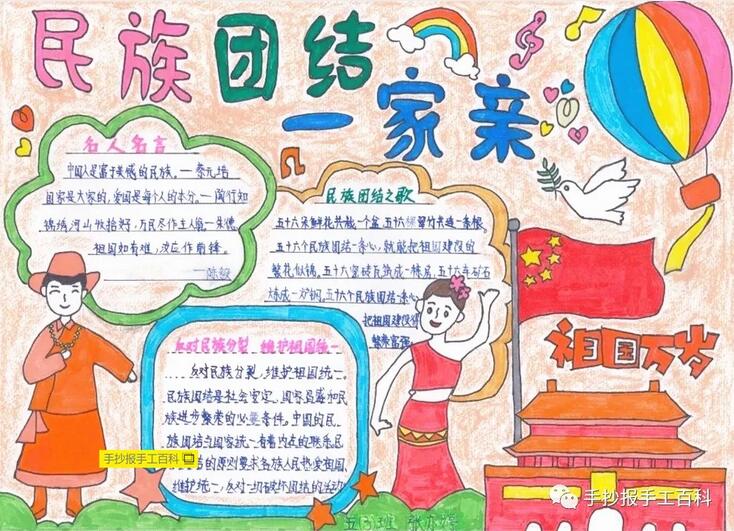 民族团结
一家亲
名人名言
中国人是富于美感的民族。—秦九培
国家是大家的,爱国是每个人的本分。—陶行知
锦绣河山收拾好,万民尽作主人翁—朱德
祖国如有难,汝应作前锋。
—陈毅
民族团结之歌
五十六朵鲜花共栽一个盆,五十六棵翠竹共连一条根。
五十六个民族团结一条心,就能把祖国建设的
繁花似锦。五十六竖砖瓦筑成一栋房,五十六车矿石
炼成一炉钢,五十六个民族团结一条心
把祖国建设得
繁荣富强
反对民族分裂 维护祖国统一
反对民族分裂,维护祖国统一。
民族团结是社会安定、国家昌盛和民
族进步繁荣的必要条件。中国的民
族团结与国家统一有着内在的联系民
的原则要求各族人民热爱祖国
维护统一,反对一切破坏团结的
祖国万岁
手抄报手工百科
五
班
手抄报手工百科